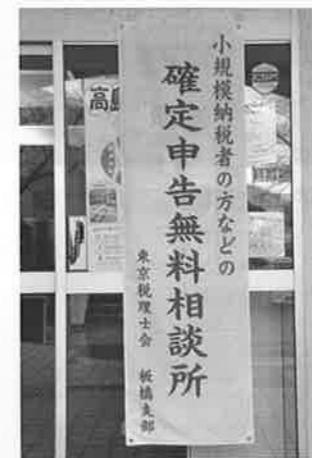 小規模納税者の方などの
確定申告無料相談所
東京税理士会 板橋支部
高島